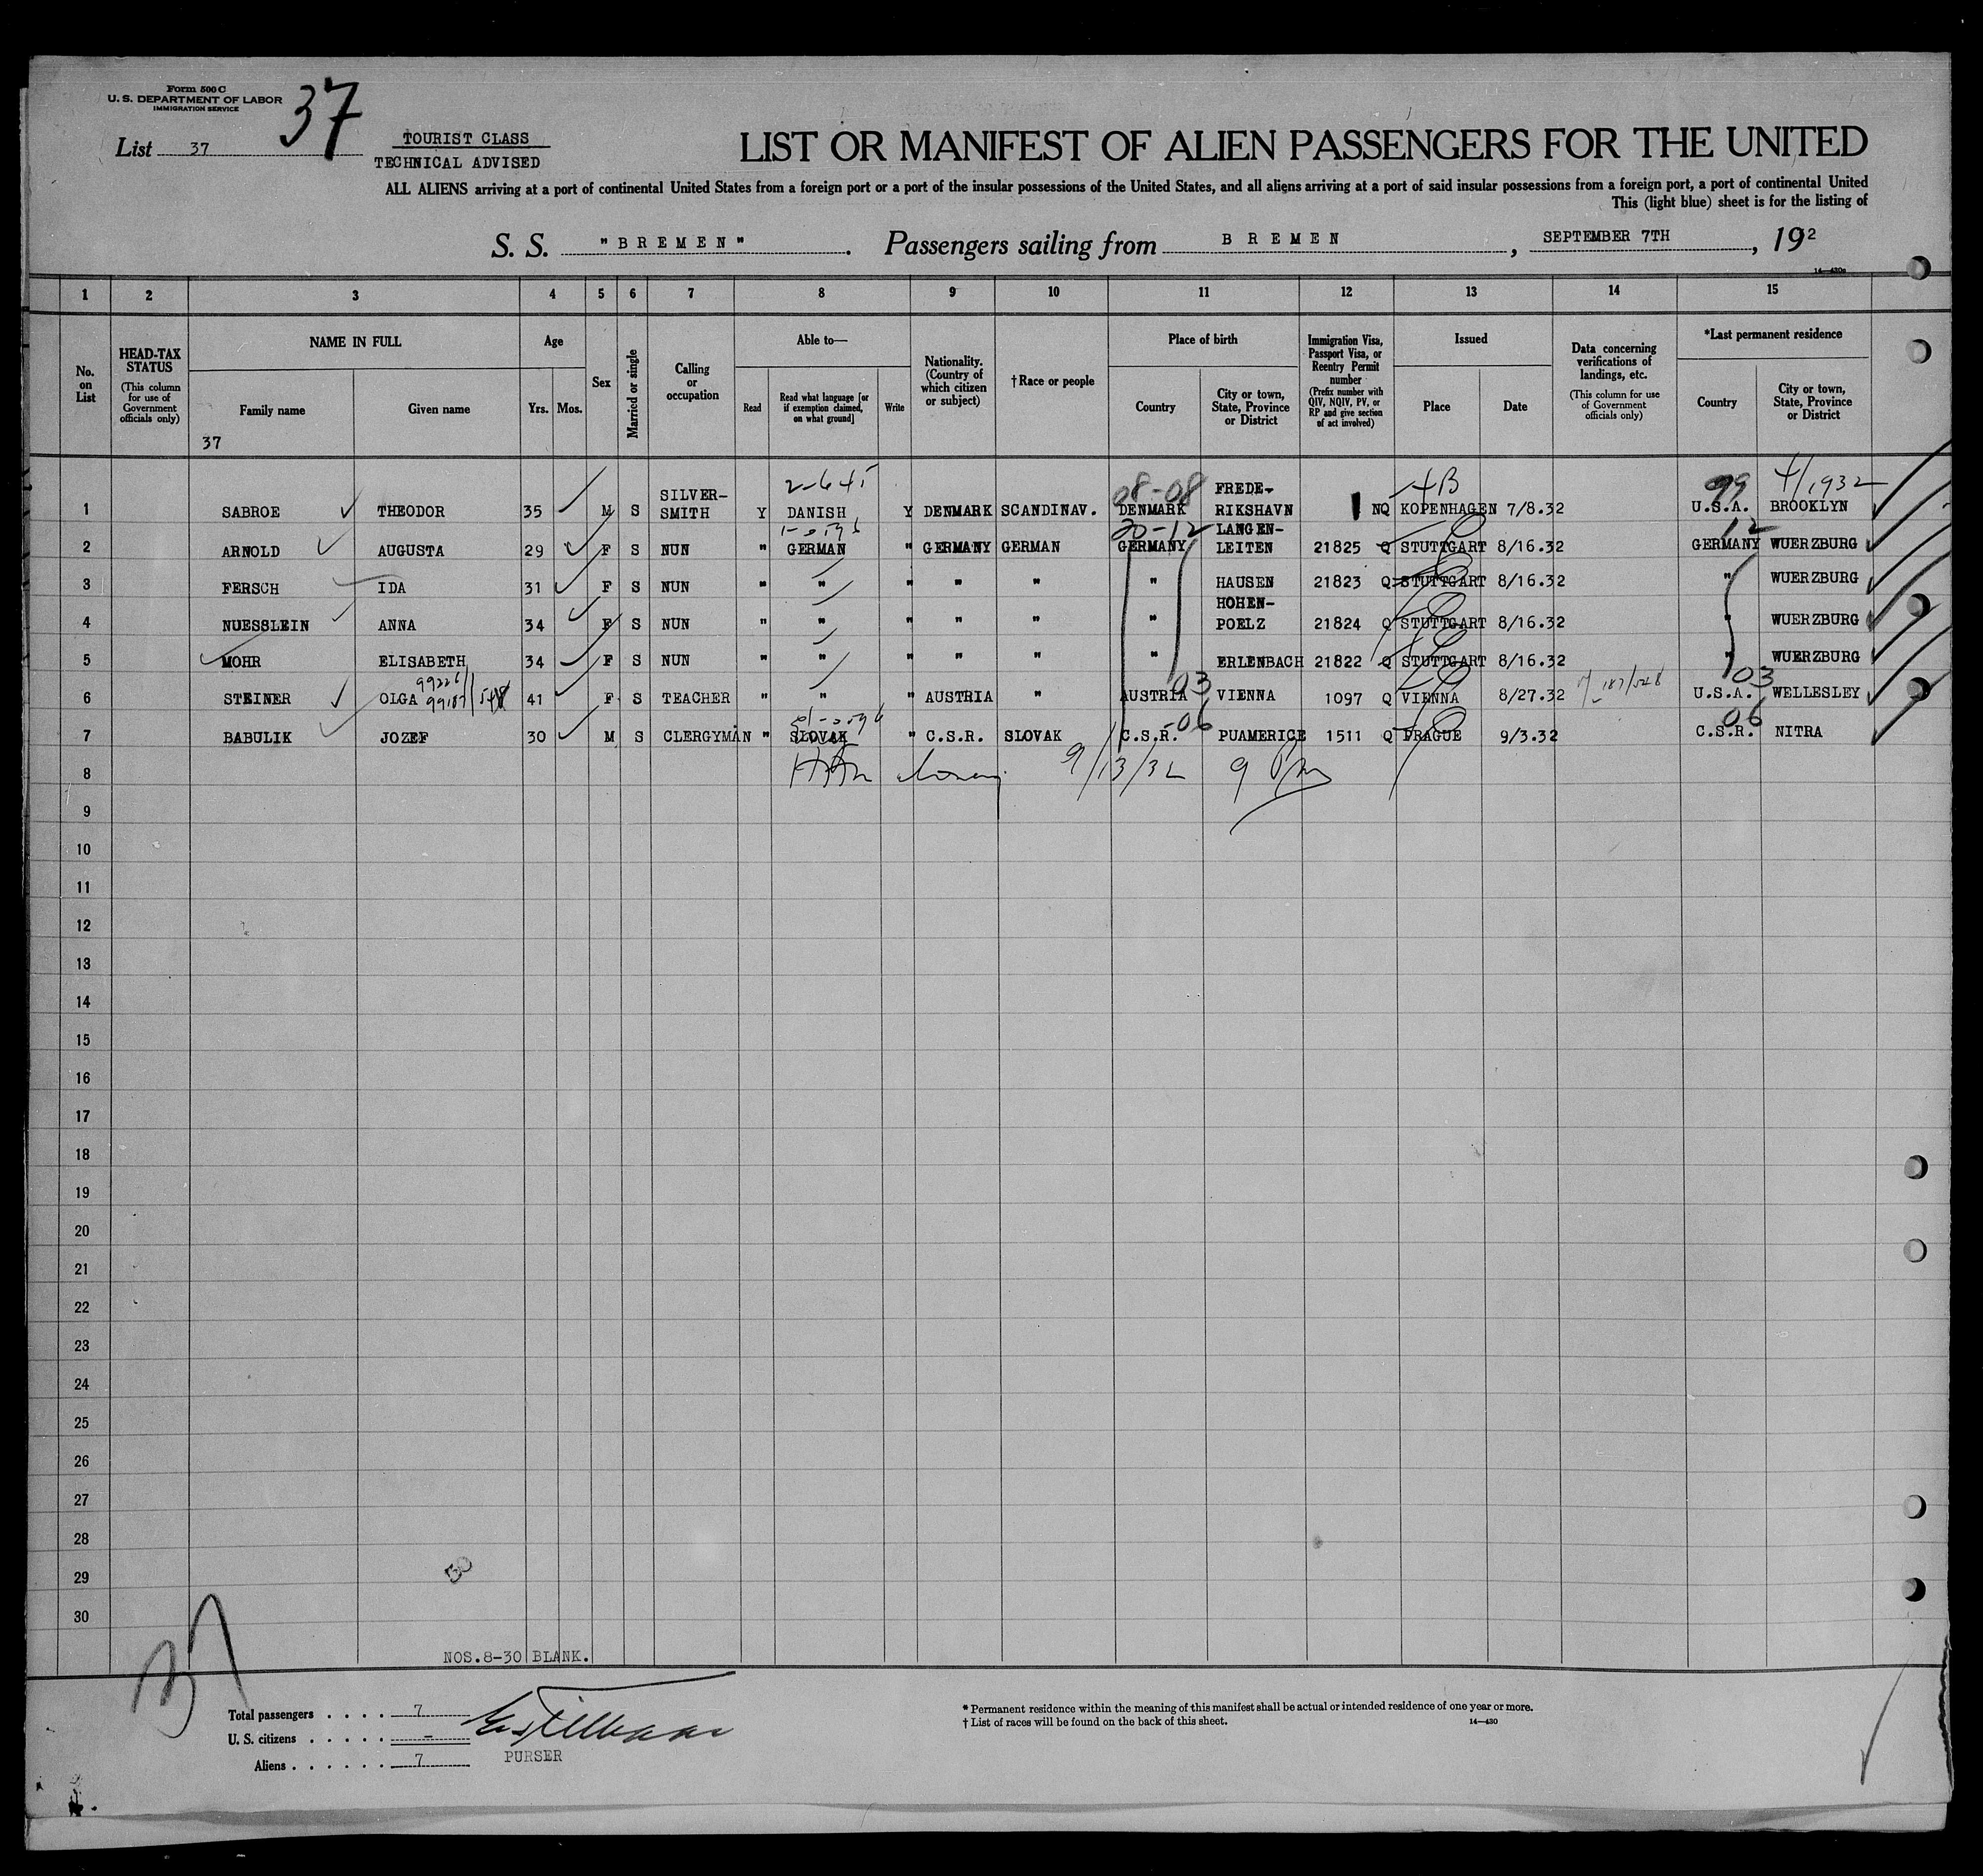 Form 500 C
U. S. DEPARTMENT OF LABOR
IMMIGRATION SERVICE
37
List 37
TOURIST CLASS
TECHNICAL ADVISED
LIST OR MANIFEST OF ALIEN PASSENGERS FOR THE UNITED
ALL ALIENS arriving at a port of continental United States from a foreign port or a port of the insular possessions of the United States, and all aliens arriving at a port of said insular possessions from a foreign port, a port of continental United
This (light blue) sheet is for the listing of
S. S. "BREMEN". Passengers sailing from BREMEN, SEPTEMBER 7TH, 192
14—430a
1 2 3 4 5 6 7 8 9 10 11 12 13 14 15
No. on List
HEAD-TAX STATUS (This column for use of Government officials only)
NAME IN FULL
Family name Given name
37
Age
Yrs. Mos.
Sex
Married or single
Calling or occupation
Able to—
Read Read what language [or if exemption claimed, on what ground] Write
Nationality. (Country of which citizen or subject)
†Race or people
Place of birth
Country City or town, State, Province or District
Immigration Visa, Passport Visa, or Reentry Permit number (Prefix number with QIV, NQIV, PV, or RP and give section of act involved)
Issued
Place Date
Data concerning verifications of landings, etc. (This column for use of Government officials only)
*Last permanent residence
Country City or town, State, Province or District
2-645 08-08 99 4/1932
1 SABROE THEODOR 35 M S SILVER-SMITH Y DANISH Y DENMARK SCANDINAV. DENMARK FREDE-RIKSHAVN NQ KOPENHAGEN 7/8.32 U.S.A. BROOKLYN
20-12 12
2 ARNOLD AUGUSTA 29 F S NUN " GERMAN " GERMANY GERMAN GERMANY LANGEN-LEITEN 21825 Q STUTTGART 8/16.32 GERMANY WUERZBURG
3 FERSCH IDA 31 F S NUN " " " " " " HAUSEN 21823 Q STUTTGART 8/16.32 " WUERZBURG
4 NUESSLEIN ANNA 34 F S NUN " " " " " " HOHEN-POELZ 21824 Q STUTTGART 8/16.32 " WUERZBURG
5 MOHR ELISABETH 34 F S NUN " " " " " " ERLENBACH 21822 Q STUTTGART 8/16.32 " WUERZBURG
99226
99187/548 03 187/548 03
6 STEINER OLGA 41 F S TEACHER " " AUSTRIA " AUSTRIA VIENNA 1097 Q VIENNA 8/27.32 U.S.A. WELLESLEY
06 06
7 BABULIK JOZEF 30 M S CLERGYMAN " SLOVAK " C.S.R. SLOVAK C.S.R. PUAMERICE 1511 Q PRAGUE 9/3.32 C.S.R. NITRA
8 9/13/32 9 Pm
9
10
11
12
13
14
15
16
17
18
19
20
21
22
23
24
25
26
27
28
29
30
NOS.8-30 BLANK.
37
Total passengers . . . . 7
U. S. citizens . . . . . -
Aliens . . . . . . 7
PURSER
* Permanent residence within the meaning of this manifest shall be actual or intended residence of one year or more.
† List of races will be found on the back of this sheet.
14—430